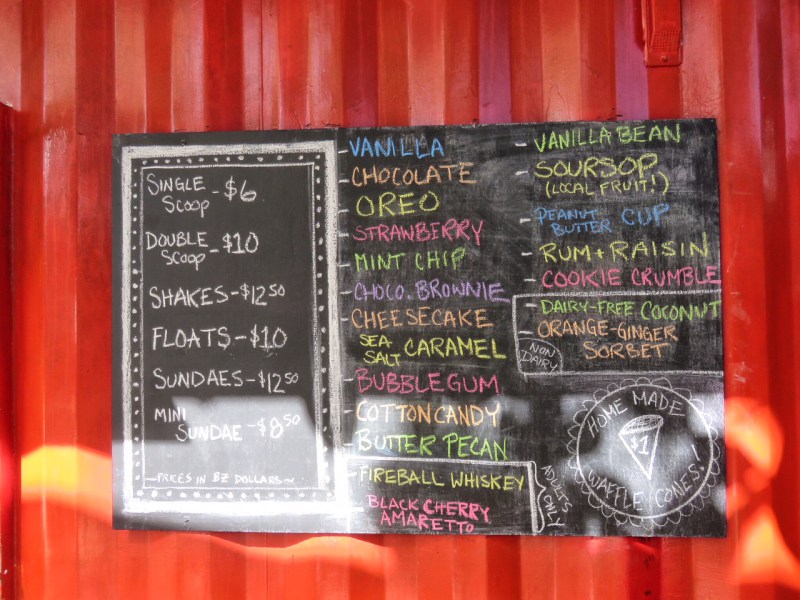 SINGLE
SCOOP - $6
DOUBLE
SCOOP - $10
SHAKES - $12.50
FLOATS - $10
SUNDAES - $12.50
MINI
SUNDAE - $8.50
~PRICES IN BZ DOLLARS~
- VANILLA
- CHOCOLATE
- OREO
- STRAWBERRY
- MINT CHIP
- CHOCO. BROWNIE
- CHEESECAKE
- SEA
SALT CARAMEL
- BUBBLEGUM
- COTTON CANDY
- BUTTER PECAN
- FIREBALL WHISKEY
- BLACK CHERRY
AMARETTO
ADULTS
ONLY
- VANILLA BEAN
- SOURSOP
(LOCAL FRUIT!)
- PEANUT
BUTTER CUP
- RUM + RAISIN
- COOKIE CRUMBLE
- DAIRY-FREE COCONUT
- ORANGE-GINGER
SORBET
NON
DAIRY
HOME MADE
$1
WAFFLE CONES!